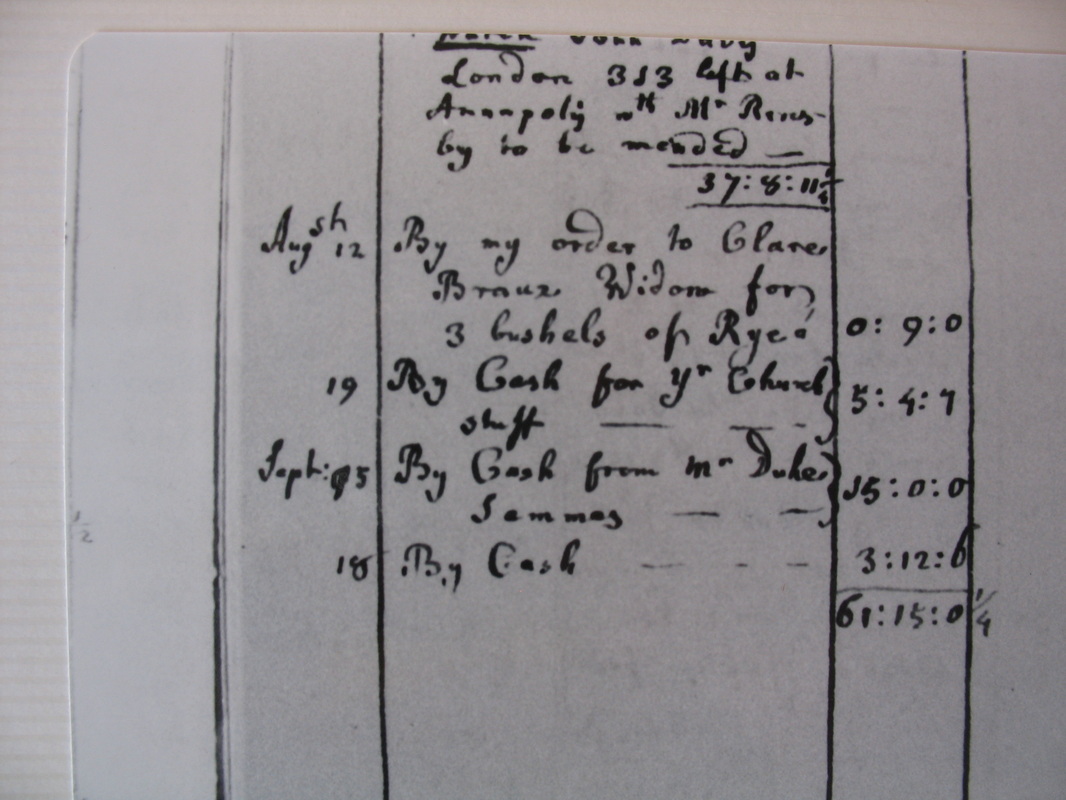 John Davy
London 313 left at
Annapolis wth Mr Reves-
by to be mended —
37:8:11 1/4
Augst 12 By my order to Clare
Widow for
3 bushels of Rye 0:9:0
19 By Cash for yr Church 5:4:7
stuff — —
Sept: 15 By Cash from Mr Dukes 15:0:0
Semmes — —
1/2
18 By Cash — — — 3:12:6
61:15:0 1/4